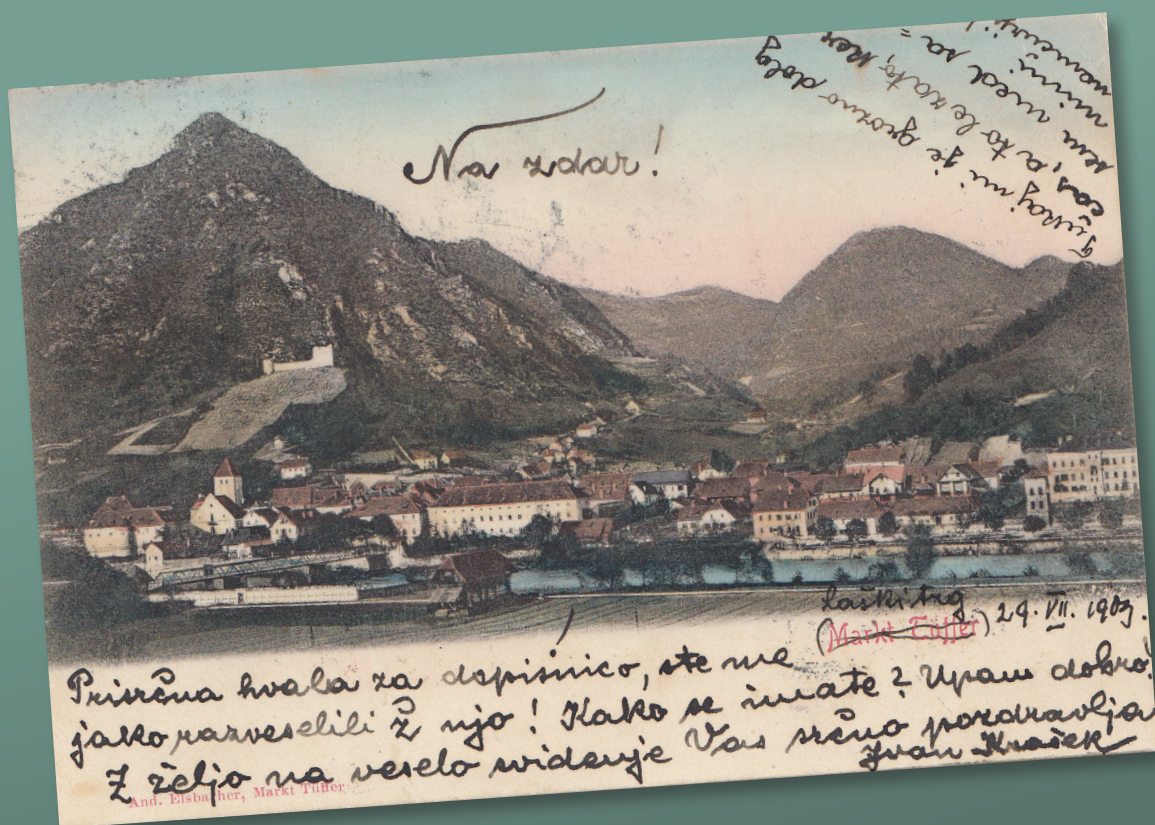 Na zdar!
Tukaj mi je grozno dolg
čas, a to le zato, ker
sem nimi, med sa=
nemurji!
laški trg
(Markt Tüffer) 29. VII. 1903.
Prisrčna hvala za dopisnico, ste me
jako razveselili ž njo! Kako se imate? Upam dobro!
Z željo na veselo svidenje Vas srčno pozdravlja
Ivan Krašek
And. Elsbacher, Markt Tüffer